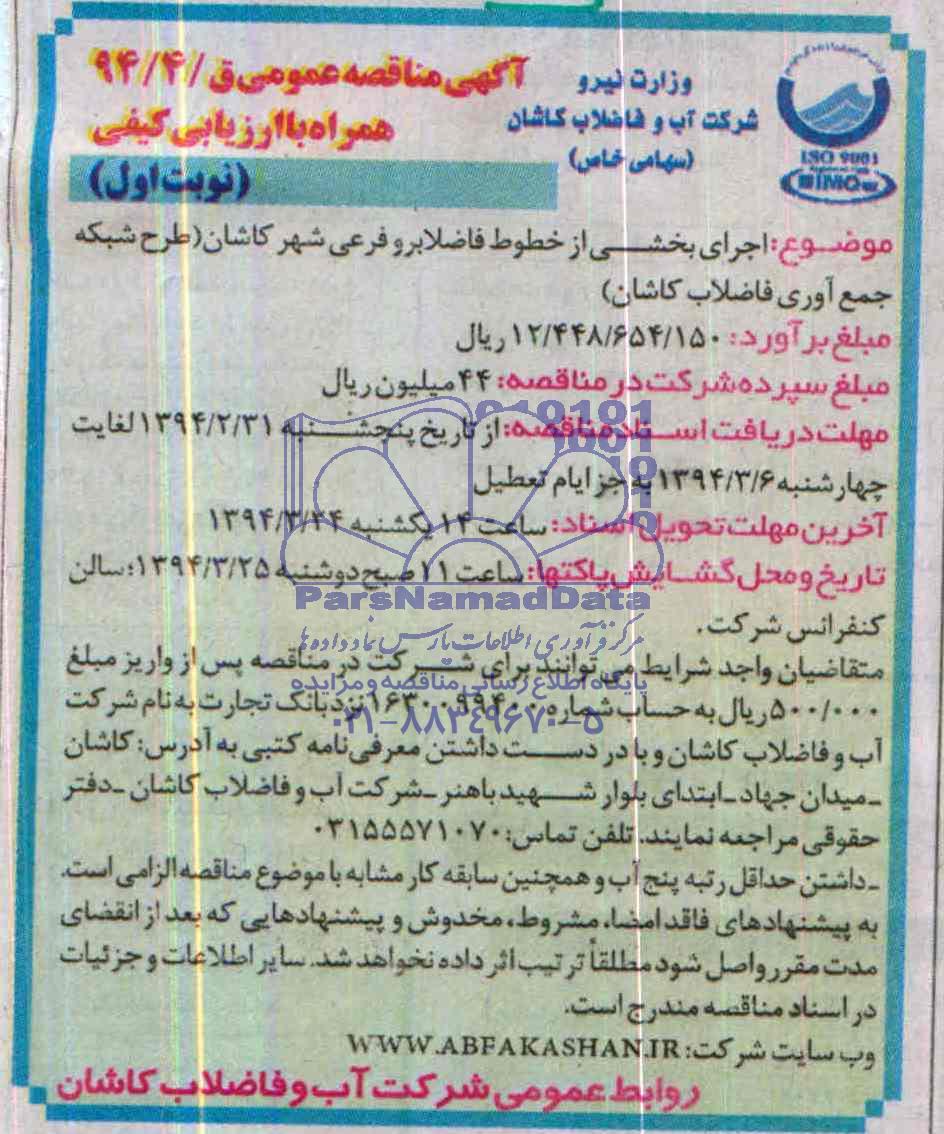 آگهی مناقصه عمومی ق/۹۴/۴
همراه با ارزیابی کیفی
(نوبت اول)
وزارت نیرو
شرکت آب و فاضلاب کاشان
(سهامی خاص)
ISO 9001
IMQ
موضوع: اجرای بخشی از خطوط فاضلابرو فرعی شهر کاشان(طرح شبکه
جمع آوری فاضلاب کاشان)
مبلغ برآورد: ۱۲/۴۴۸/۶۵۴/۱۵۰ ریال
مبلغ سپرده شرکت در مناقصه: ۴۴ میلیون ریال
مهلت دریافت اسناد مناقصه: از تاریخ پنجشنبه ۱۳۹۴/۲/۳۱ لغایت
چهارشنبه ۱۳۹۴/۳/۶ به جز ایام تعطیل
آخرین مهلت تحویل اسناد: ساعت ۱۴ یکشنبه ۱۳۹۴/۳/۲۴
تاریخ و محل گشایش پاکتها: ساعت ۱۱ صبح دوشنبه ۱۳۹۴/۳/۲۵؛ سالن
کنفرانس شرکت.
متقاضیان واجد شرایط می توانند برای شرکت در مناقصه پس از واریز مبلغ
۵۰۰/۰۰۰ ریال به حساب شماره ۱۶۳۰۰۹۹۴۰۰ نزد بانک تجارت به نام شرکت
آب و فاضلاب کاشان و با در دست داشتن معرفی نامه کتبی به آدرس: کاشان
ـ میدان جهاد ـ ابتدای بلوار شهید باهنر ـ شرکت آب و فاضلاب کاشان ـ دفتر
حقوقی مراجعه نمایند. تلفن تماس: ۰۳۱۵۵۵۷۱۰۷۰
ـ داشتن حداقل رتبه پنج آب و همچنین سابقه کار مشابه با موضوع مناقصه الزامی است.
به پیشنهادهای فاقد امضا، مشروط، مخدوش و پیشنهادهایی که بعد از انقضای
مدت مقرر واصل شود مطلقاً ترتیب اثر داده نخواهد شد. سایر اطلاعات و جزئیات
در اسناد مناقصه مندرج است.
وب سایت شرکت: WWW.ABFAKASHAN.IR
روابط عمومی شرکت آب و فاضلاب کاشان
ParsNamadData
مرکز فرآوری اطلاعات پارس نماد داده ها
پایگاه اطلاع رسانی مناقصه و مزایده
۰۲۱-۸۸۳۴۹۶۷۰-۵